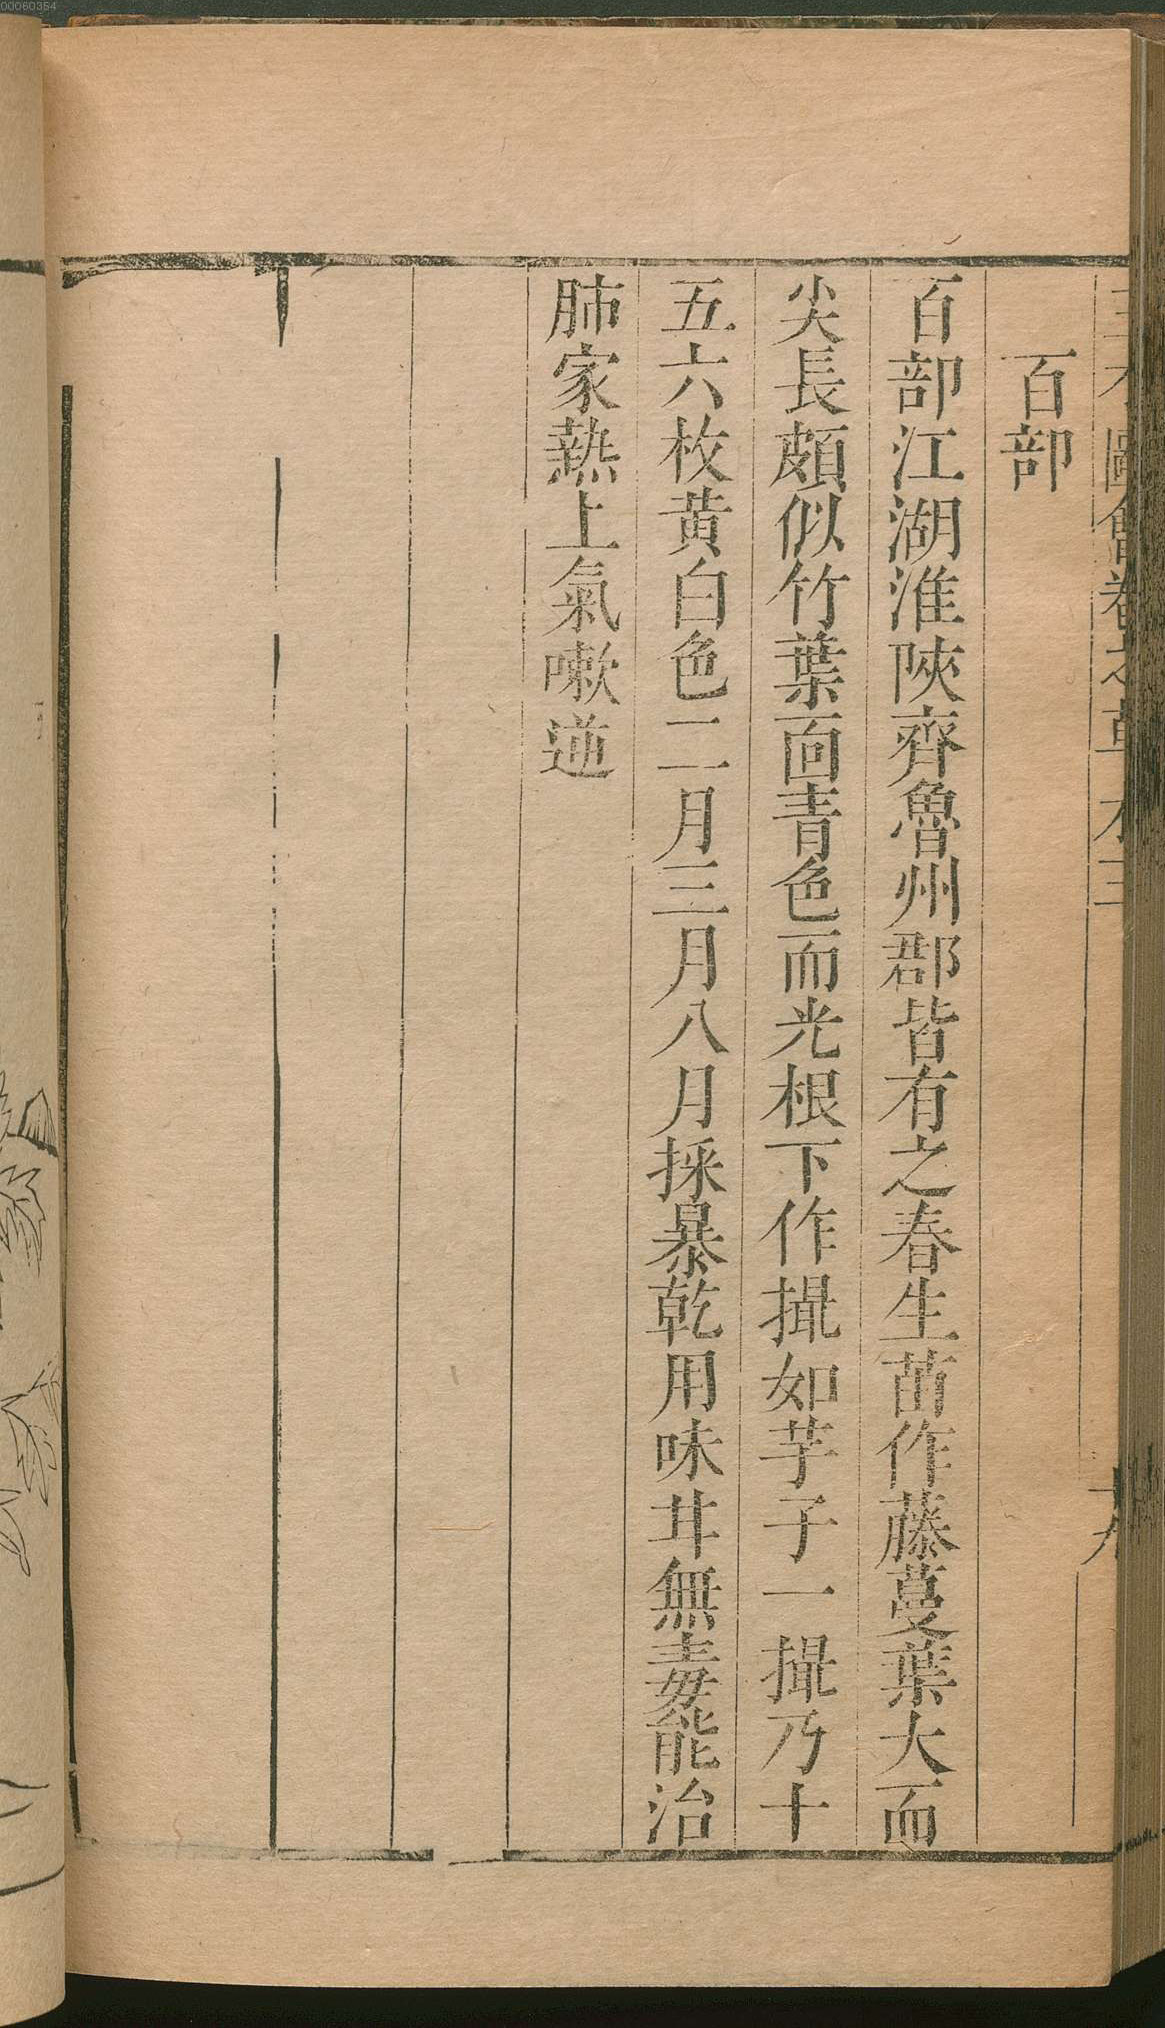 00060354
百部
百部江湖淮陝齊魯州郡皆有之春生苗作藤蔓葉大而
尖長頗似竹葉面青色而光根下作撮如芋子一撮乃十
五六枚黄白色二月三月八月採暴乾用味甘無毒能治
肺家熱上氣嗽逆